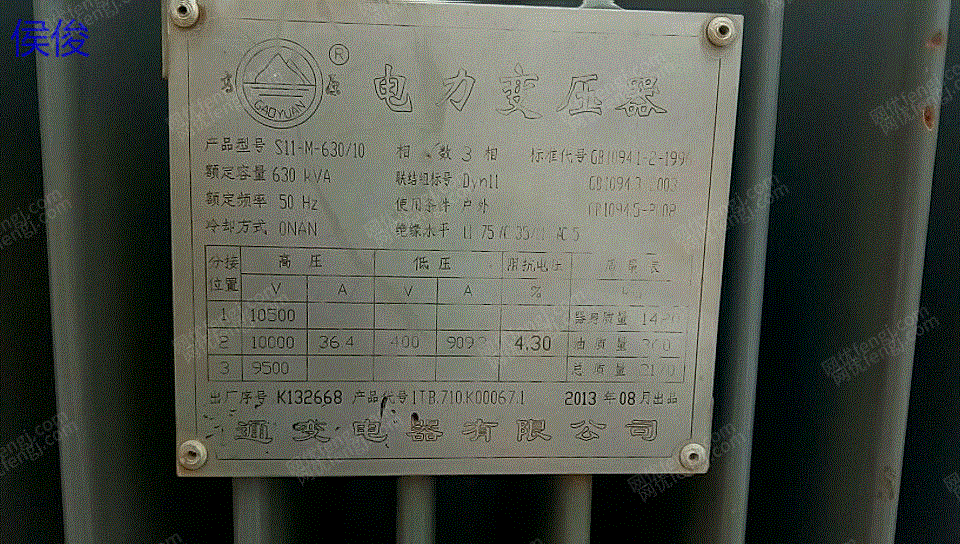 侯俊
高 原 ®
GAOYUAN
电力变压器
产品型号 S11-M-630/10 相 数 3 相 标准代号 GB1094.1-2-1996
额定容量 630 kVA 联结组标号 Dyn11 GB1094.3-2003
额定频率 50 Hz 使用条件 户外
冷却方式 ONAN 绝缘水平 LI 75 AC 35/LI AC 5
分接位置 高 压 低 压 阻抗电压
V A V A %
1 10500 器身质量
2 10000 36.4 400 909.3 4.30 油 质 量
3 9500 总 质 量
出厂序号 K132668 产品代号 1TB.710.K00067.1 2013 年 08 月出品
通变电器有限公司
网优fengj.com